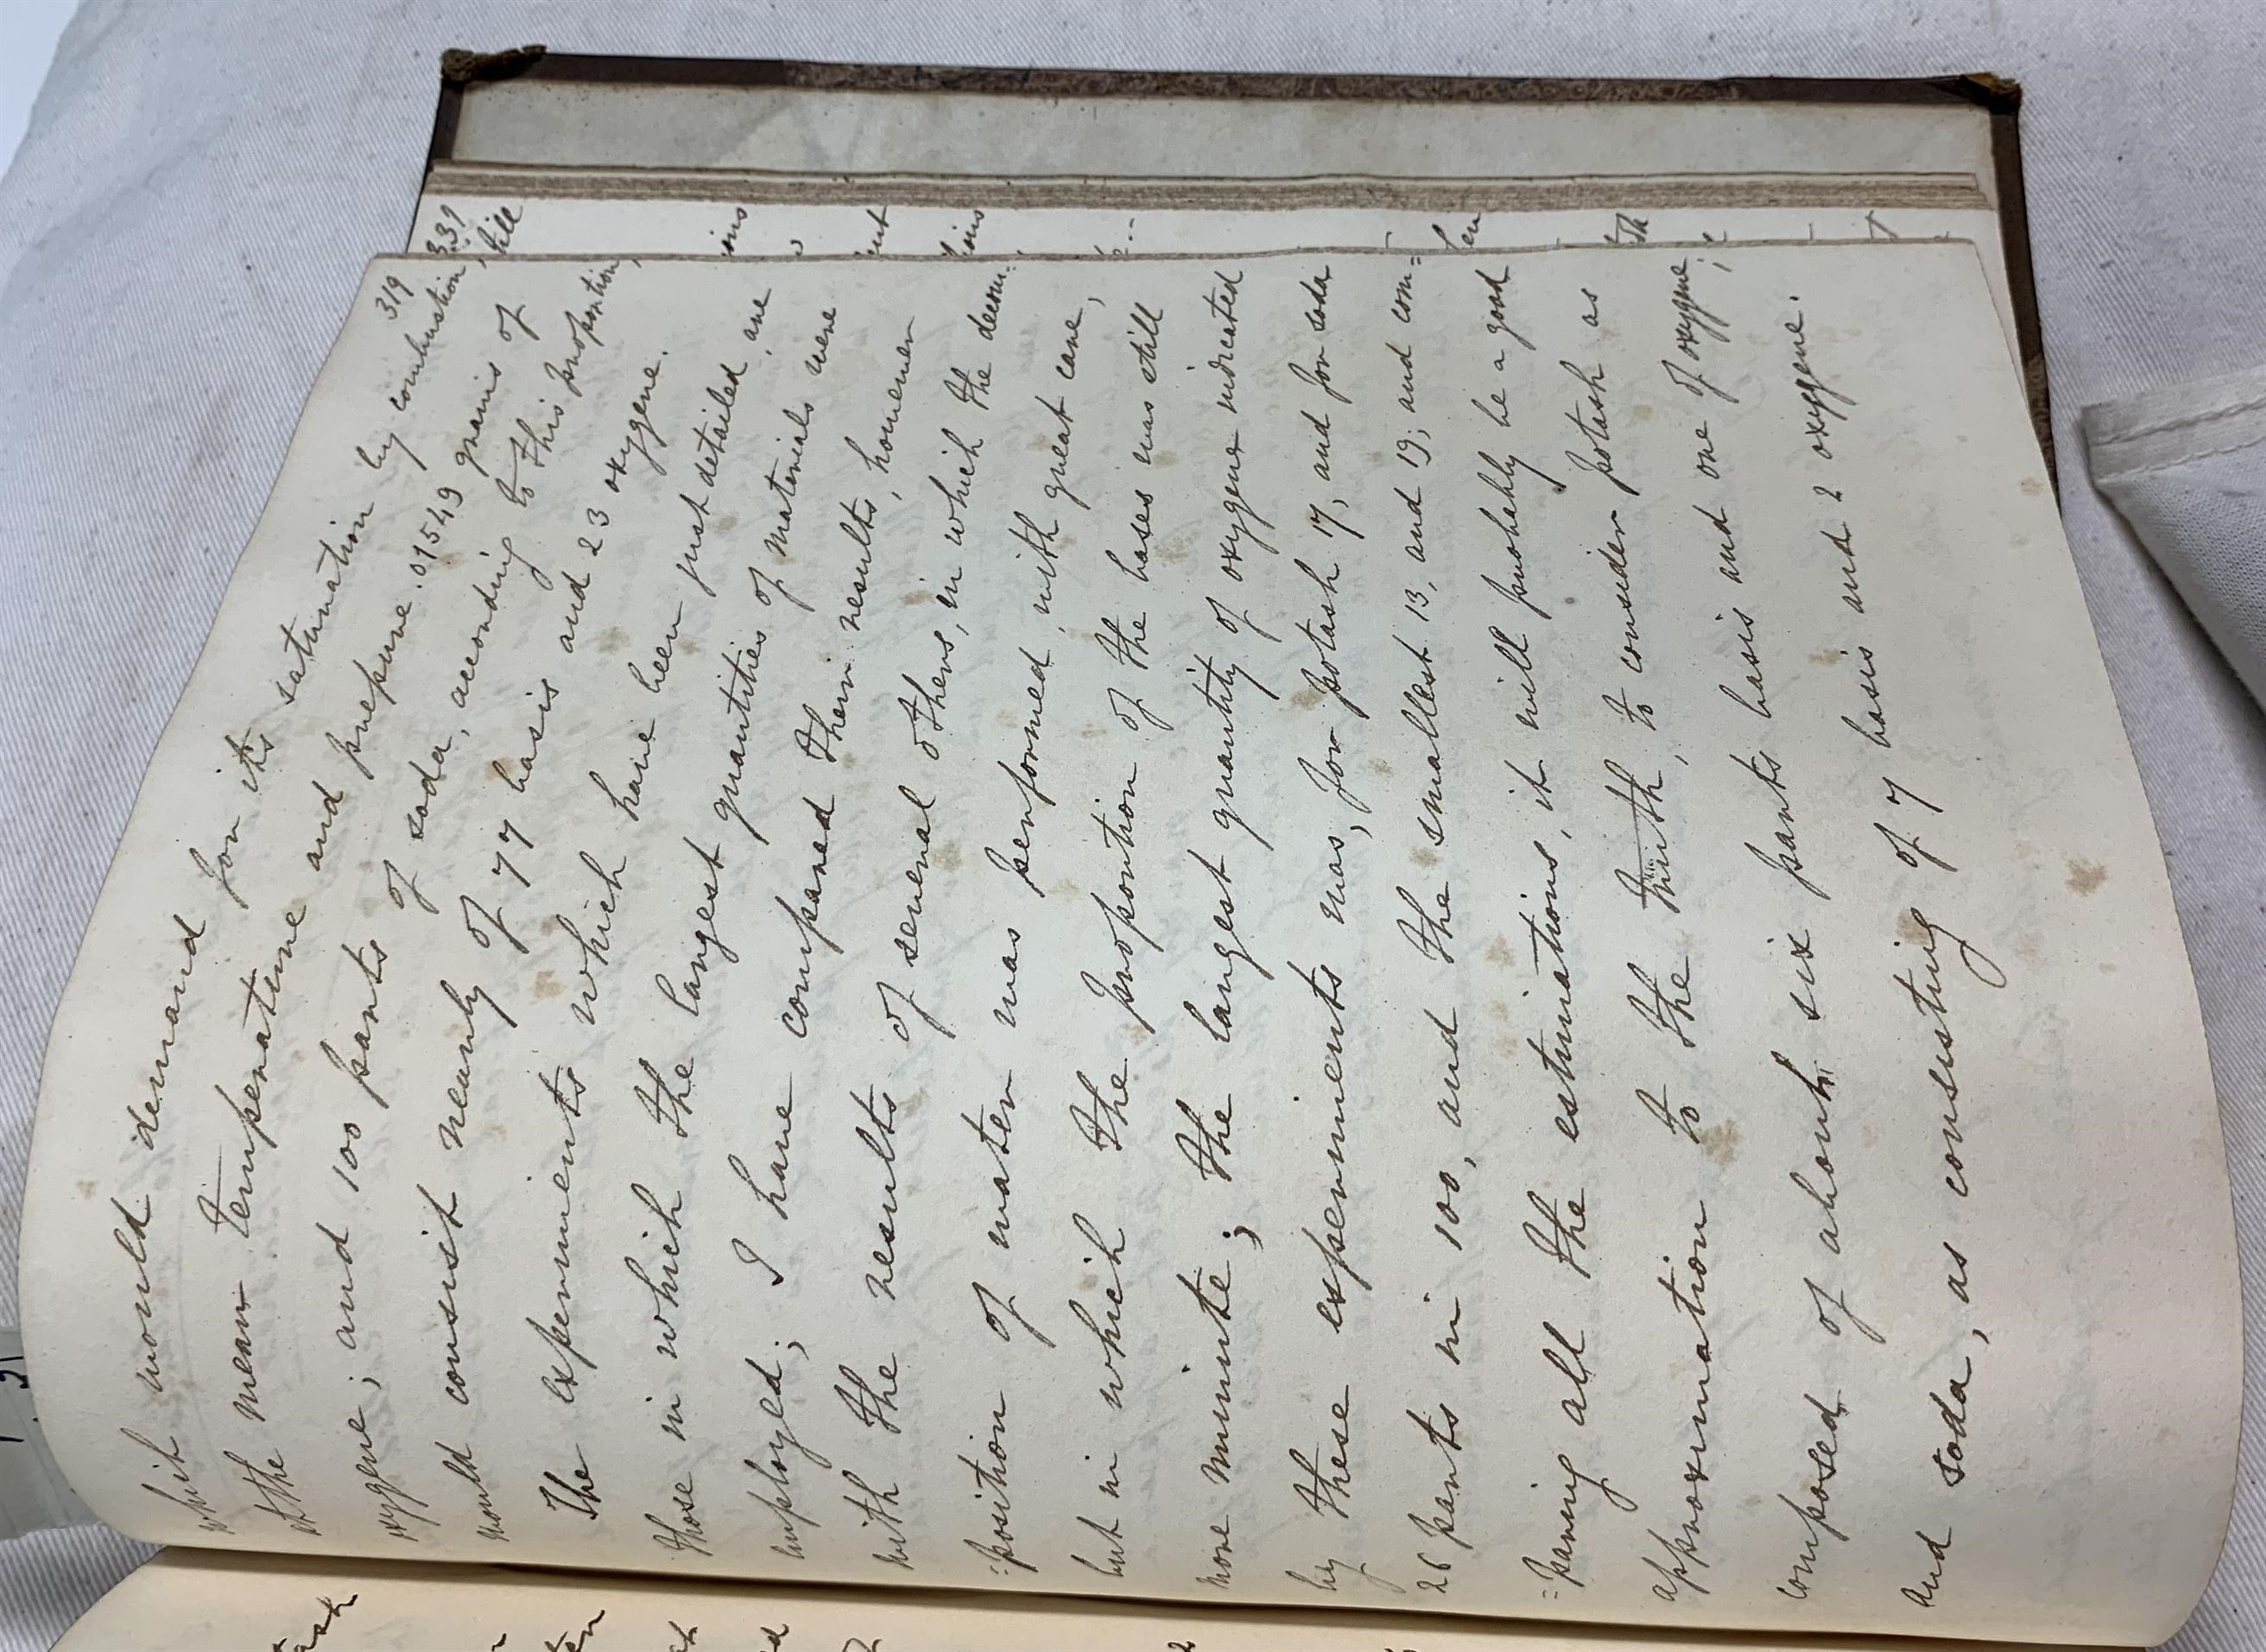 319
which would demand for its saturation by combustion,
at the mean temperature and pressure .01549 grains of
oxygene; and 100 parts of soda, according to this proportion,
would consist nearly of 77 basis and 23 oxygene.
The experiments which have been just detailed, are
those in which the largest quantities of materials were
employed; I have compared their results, however
with the results of several others, in which the decom=
=position of water was performed with great care,
but in which the proportion of the bases was still
more minute; the largest quantity of oxygene indicated
by these experiments was, for potash 17, and for soda
26 parts in 100, and the smallest 13, and 19; and com=
=paring all the estimations, it will probably be a good
approximation to the truth, to consider potash as
composed of about six parts basis and one of oxygene;
and soda, as consisting of 7 basis and 2 oxygene.
339
till